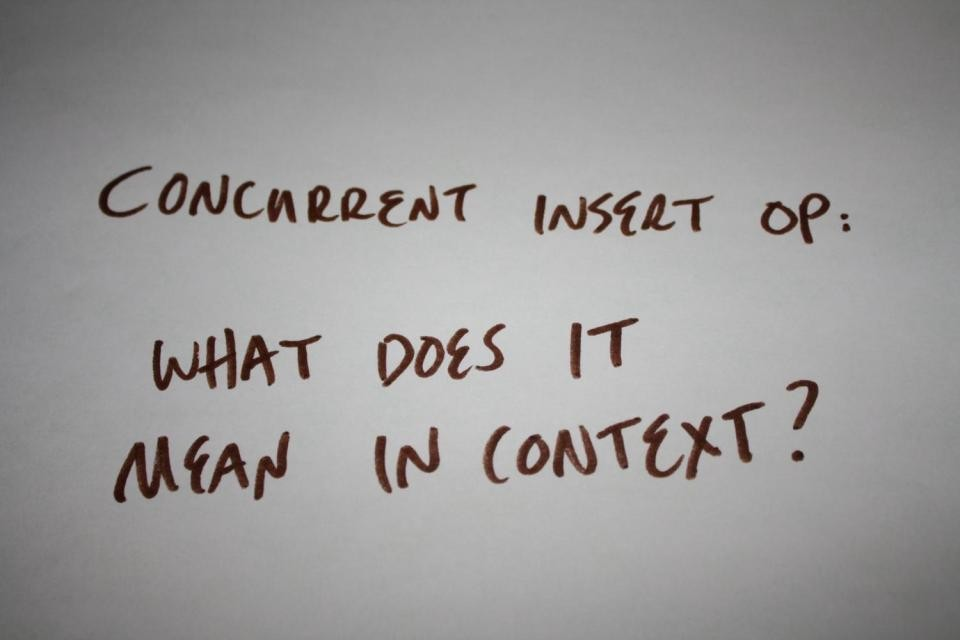 CONCURRENT INSERT OP:
WHAT DOES IT
MEAN IN CONTEXT?